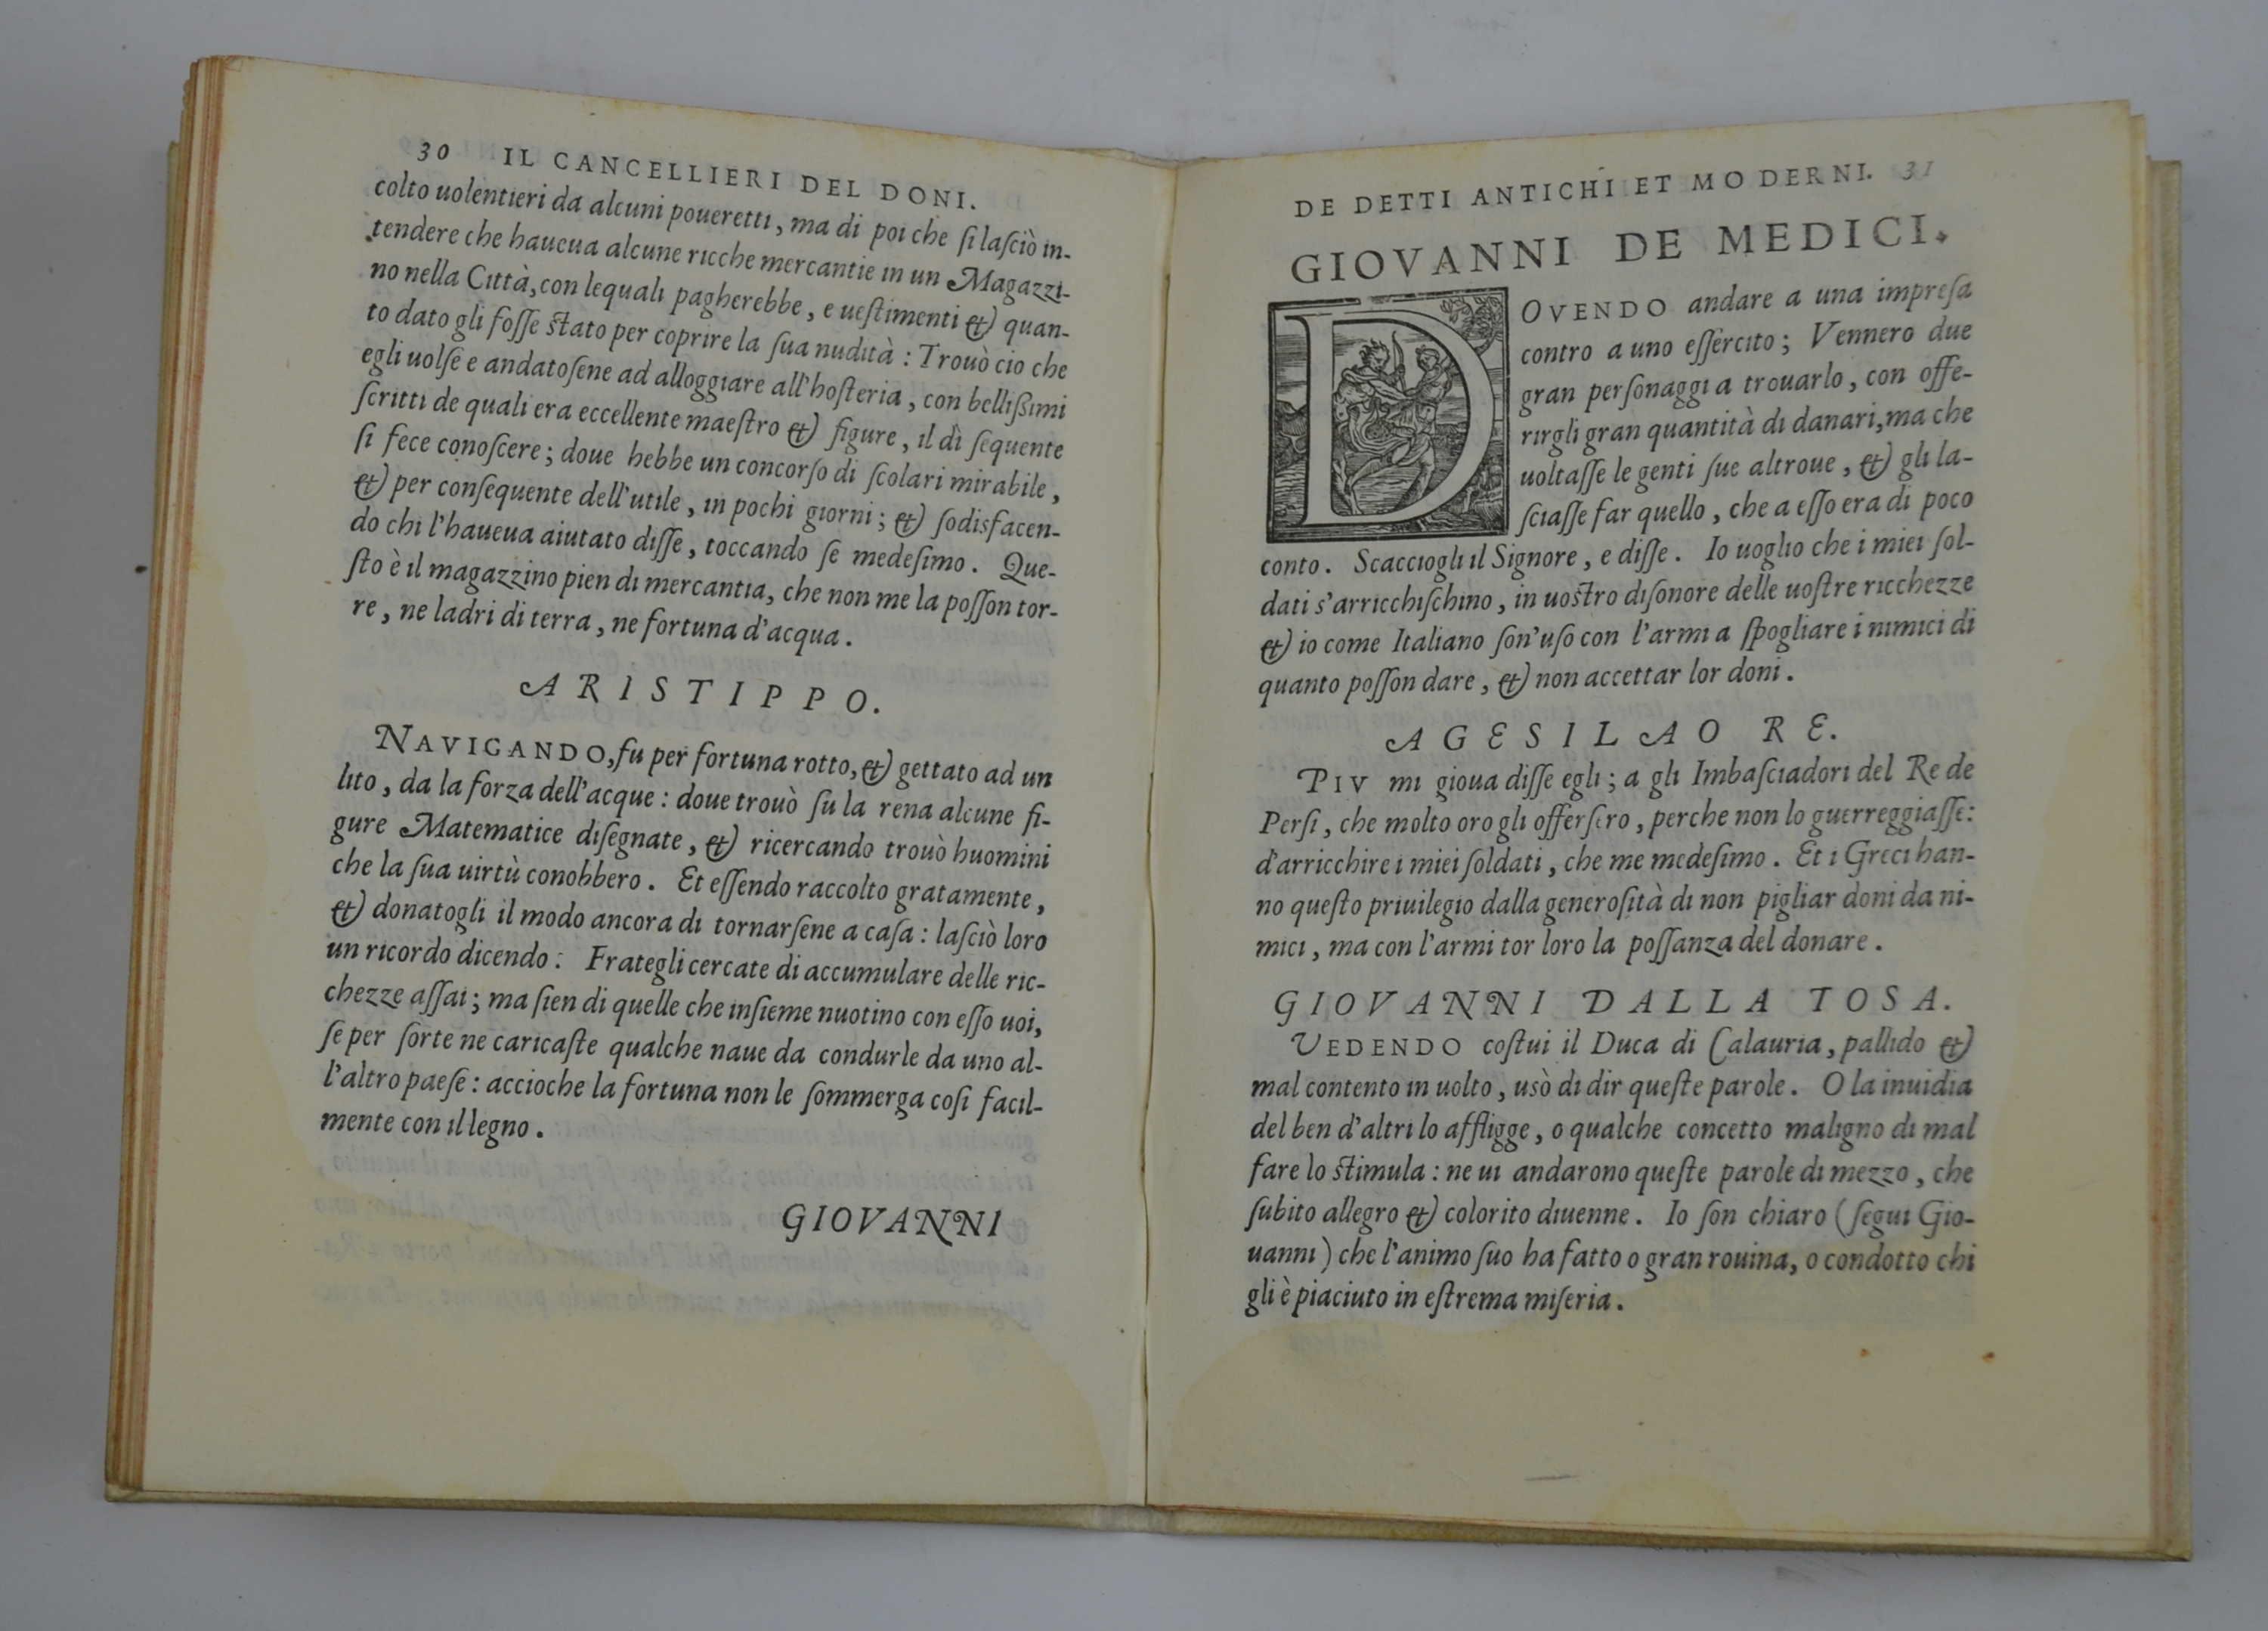 30 IL CANCELLIERI DEL DONI.
colto uolentieri da alcuni poueretti, ma di poi che ſi laſciò in-
tendere che haueua alcune ricche mercantie in un Magazzi-
no nella Città, con lequali pagherebbe, e ueſtimenti & quan-
to dato gli foſſe ſtato per coprire la ſua nudità : Trouò cio che
egli uolſe e andatoſene ad alloggiare all'hoſteria, con belliſſimi
ſcritti de quali era eccellente maeſtro & figure, il dì ſequente
ſi fece conoſcere; doue hebbe un concorſo di ſcolari mirabile,
& per conſequente dell'utile, in pochi giorni; & ſodisfacen-
do chi l'haueua aiutato diſſe, toccando ſe medeſimo. Que-
ſto è il magazzino pien di mercantia, che non me la poſſon tor-
re, ne ladri di terra, ne fortuna d'acqua.
ARISTIPPO.
NAVIGANDO, fu per fortuna rotto, & gettato ad un
lito, da la forza dell'acque : doue trouò ſu la rena alcune fi-
gure Matematice diſegnate, & ricercando trouò huomini
che la ſua uirtù conobbero. Et eſſendo raccolto gratamente,
& donatogli il modo ancora di tornarſene a caſa : laſciò loro
un ricordo dicendo : Frategli cercate di accumulare delle ric-
chezze aſſai; ma ſien di quelle che inſieme nuotino con eſſo uoi,
ſe per ſorte ne caricaſte qualche naue da condurle da uno al-
l'altro paeſe : accioche la fortuna non le ſommerga coſi facil-
mente con il legno.
GIOVANNI
DE DETTI ANTICHI ET MODERNI. 31
GIOVANNI DE MEDICI.
DOVENDO andare a una impreſa
contro a uno eſſercito; Vennero due
gran perſonaggi a trouarlo, con offe-
rirgli gran quantità di danari, ma che
uoltaſſe le genti ſue altroue, & gli la-
ſciaſſe far quello, che a eſſo era di poco
conto. Scacciogli il Signore, e diſſe. Io uoglio che i miei ſol-
dati s'arricchiſchino, in uoſtro diſonore delle uoſtre ricchezze
& io come Italiano ſon'uſo con l'armi a ſpogliare i nimici di
quanto poſſon dare, & non accettar lor doni.
AGESILAO RE.
PIV mi gioua diſſe egli; a gli Imbaſciadori del Re de
Perſi, che molto oro gli offerſero, perche non lo guerreggiaſſe:
d'arricchire i miei ſoldati, che me medeſimo. Et i Greci han-
no queſto priuilegio dalla generoſità di non pigliar doni da ni-
mici, ma con l'armi tor loro la poſſanza del donare.
GIOVANNI DALLA TOSA.
VEDENDO coſtui il Duca di Calauria, pallido &
mal contento in uolto, usò di dir queſte parole. O la inuidia
del ben d'altri lo affligge, o qualche concetto maligno di mal
fare lo ſtimula : ne ui andarono queſte parole di mezzo, che
ſubito allegro & colorito diuenne. Io ſon chiaro (ſegui Gio-
uanni) che l'animo ſuo ha fatto o gran rouina, o condotto chi
gli è piaciuto in eſtrema miſeria.